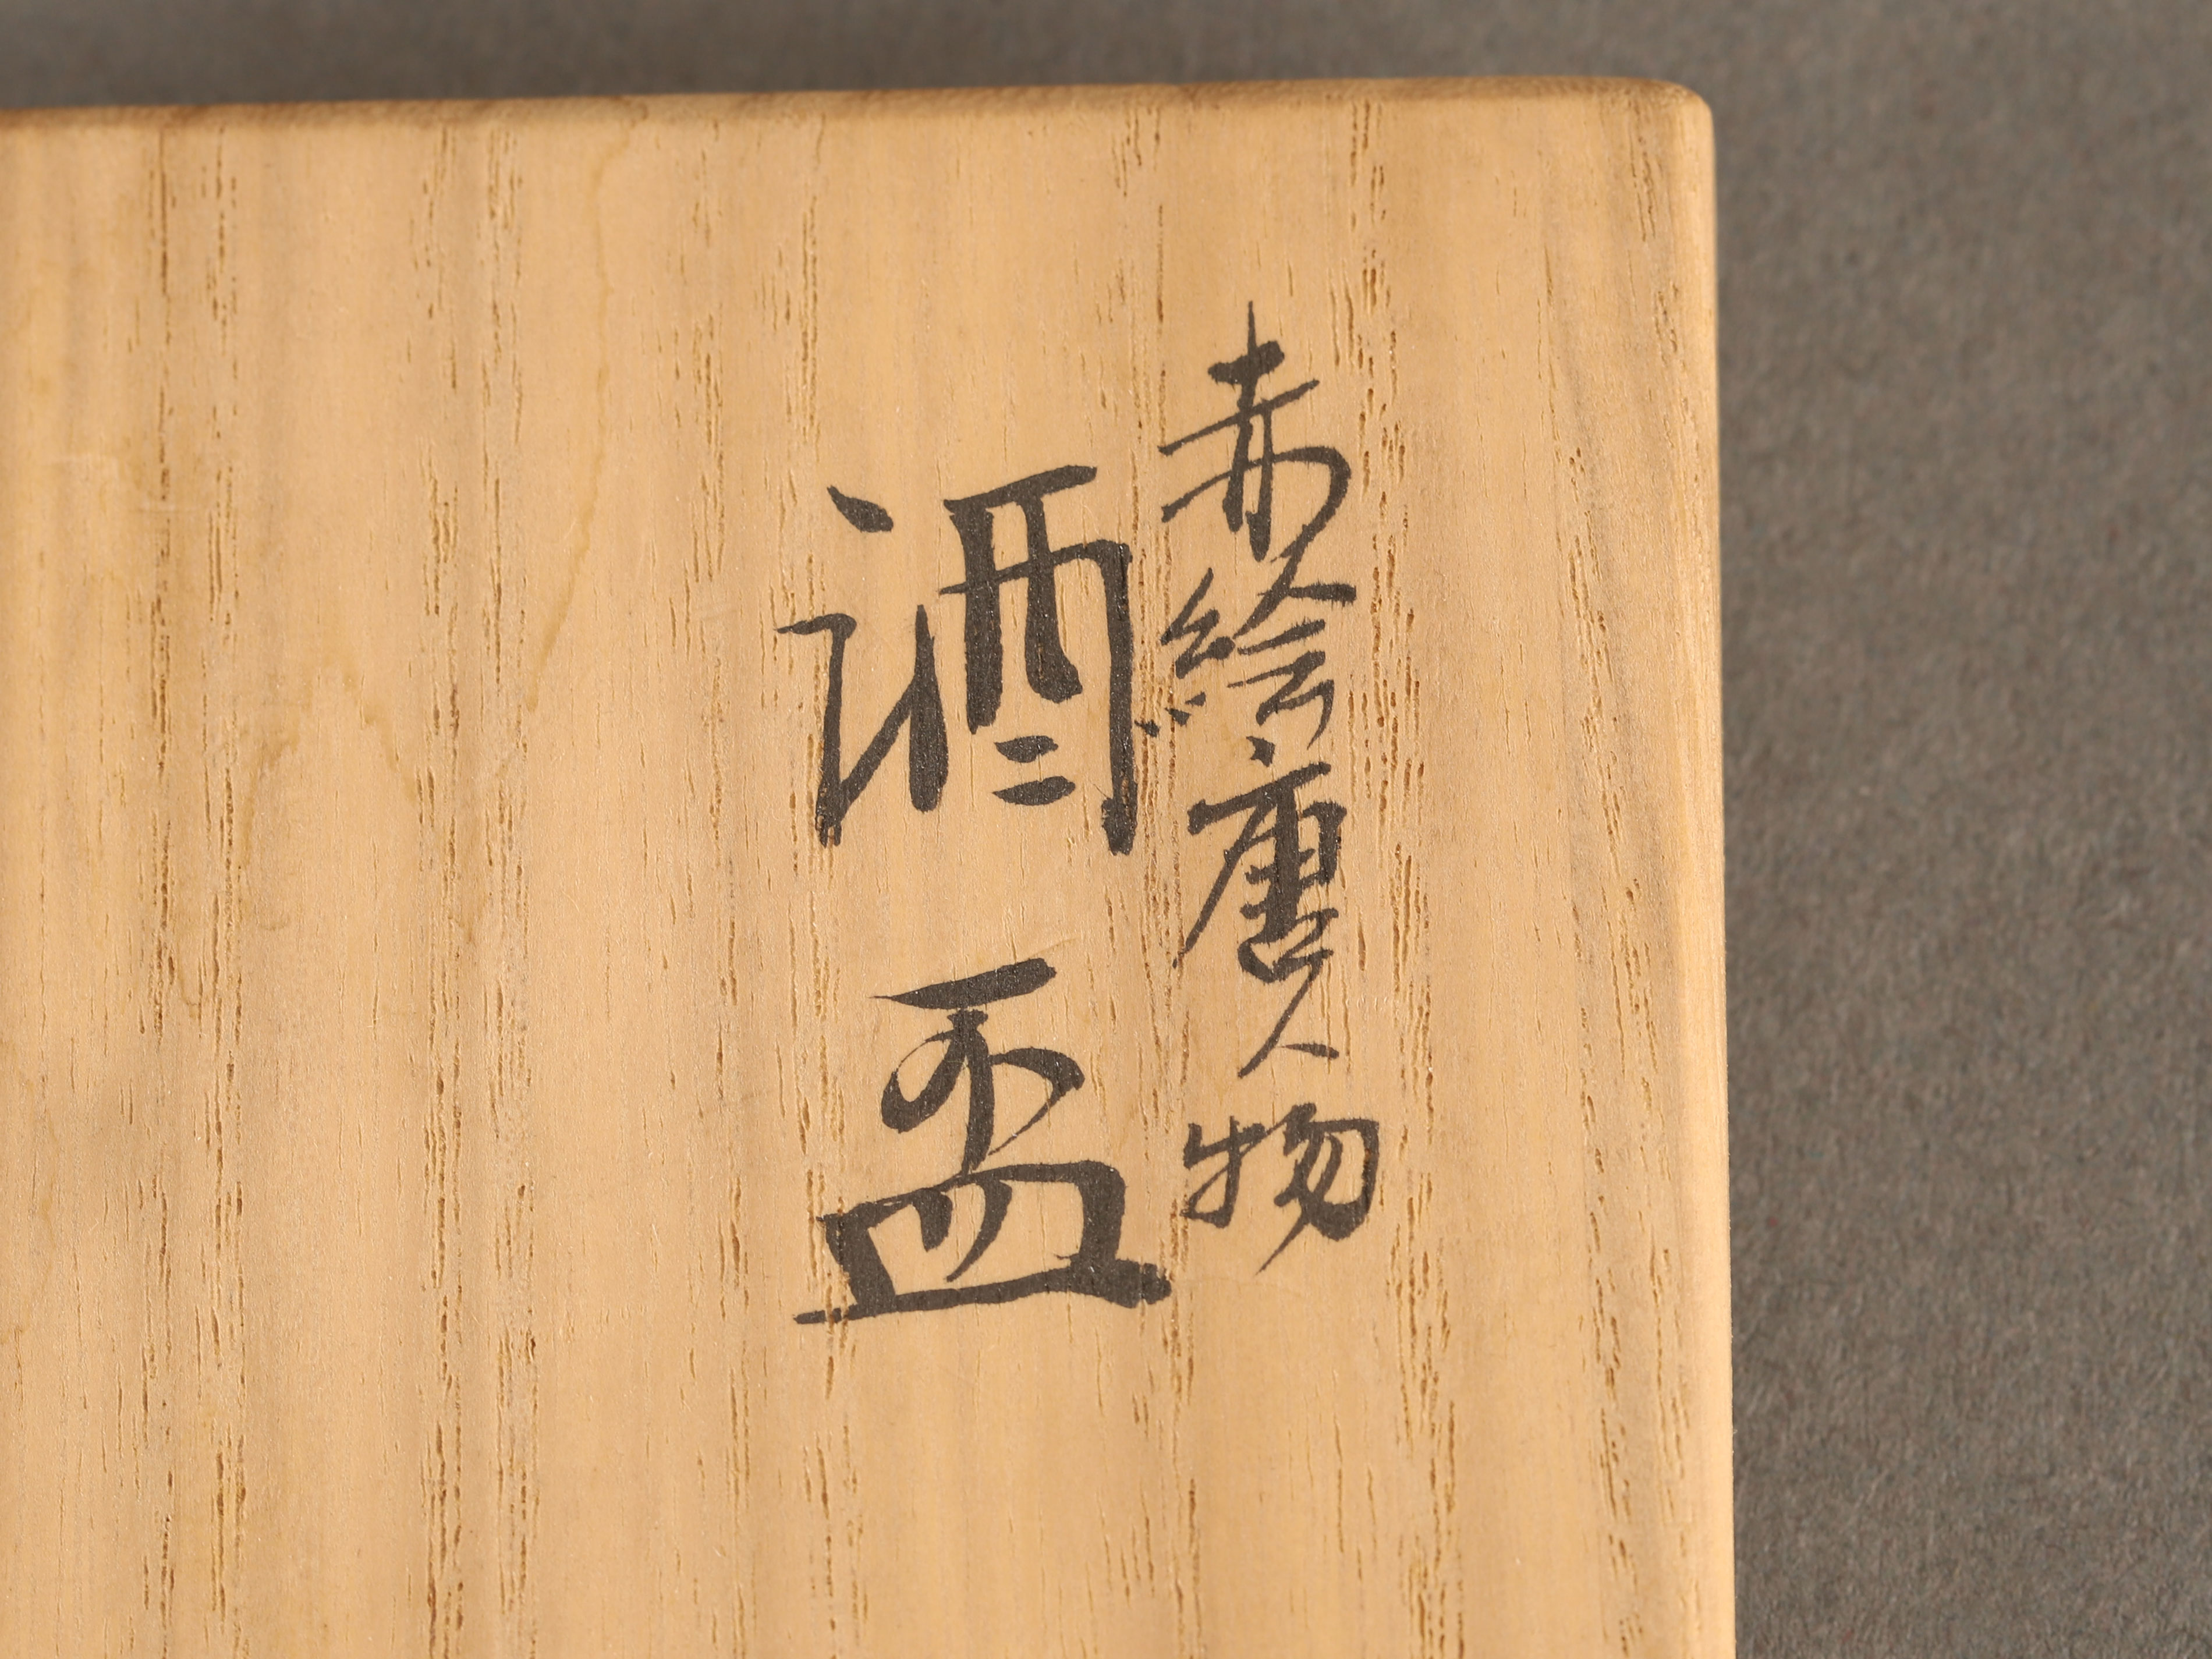 赤絵唐人物
酒盃